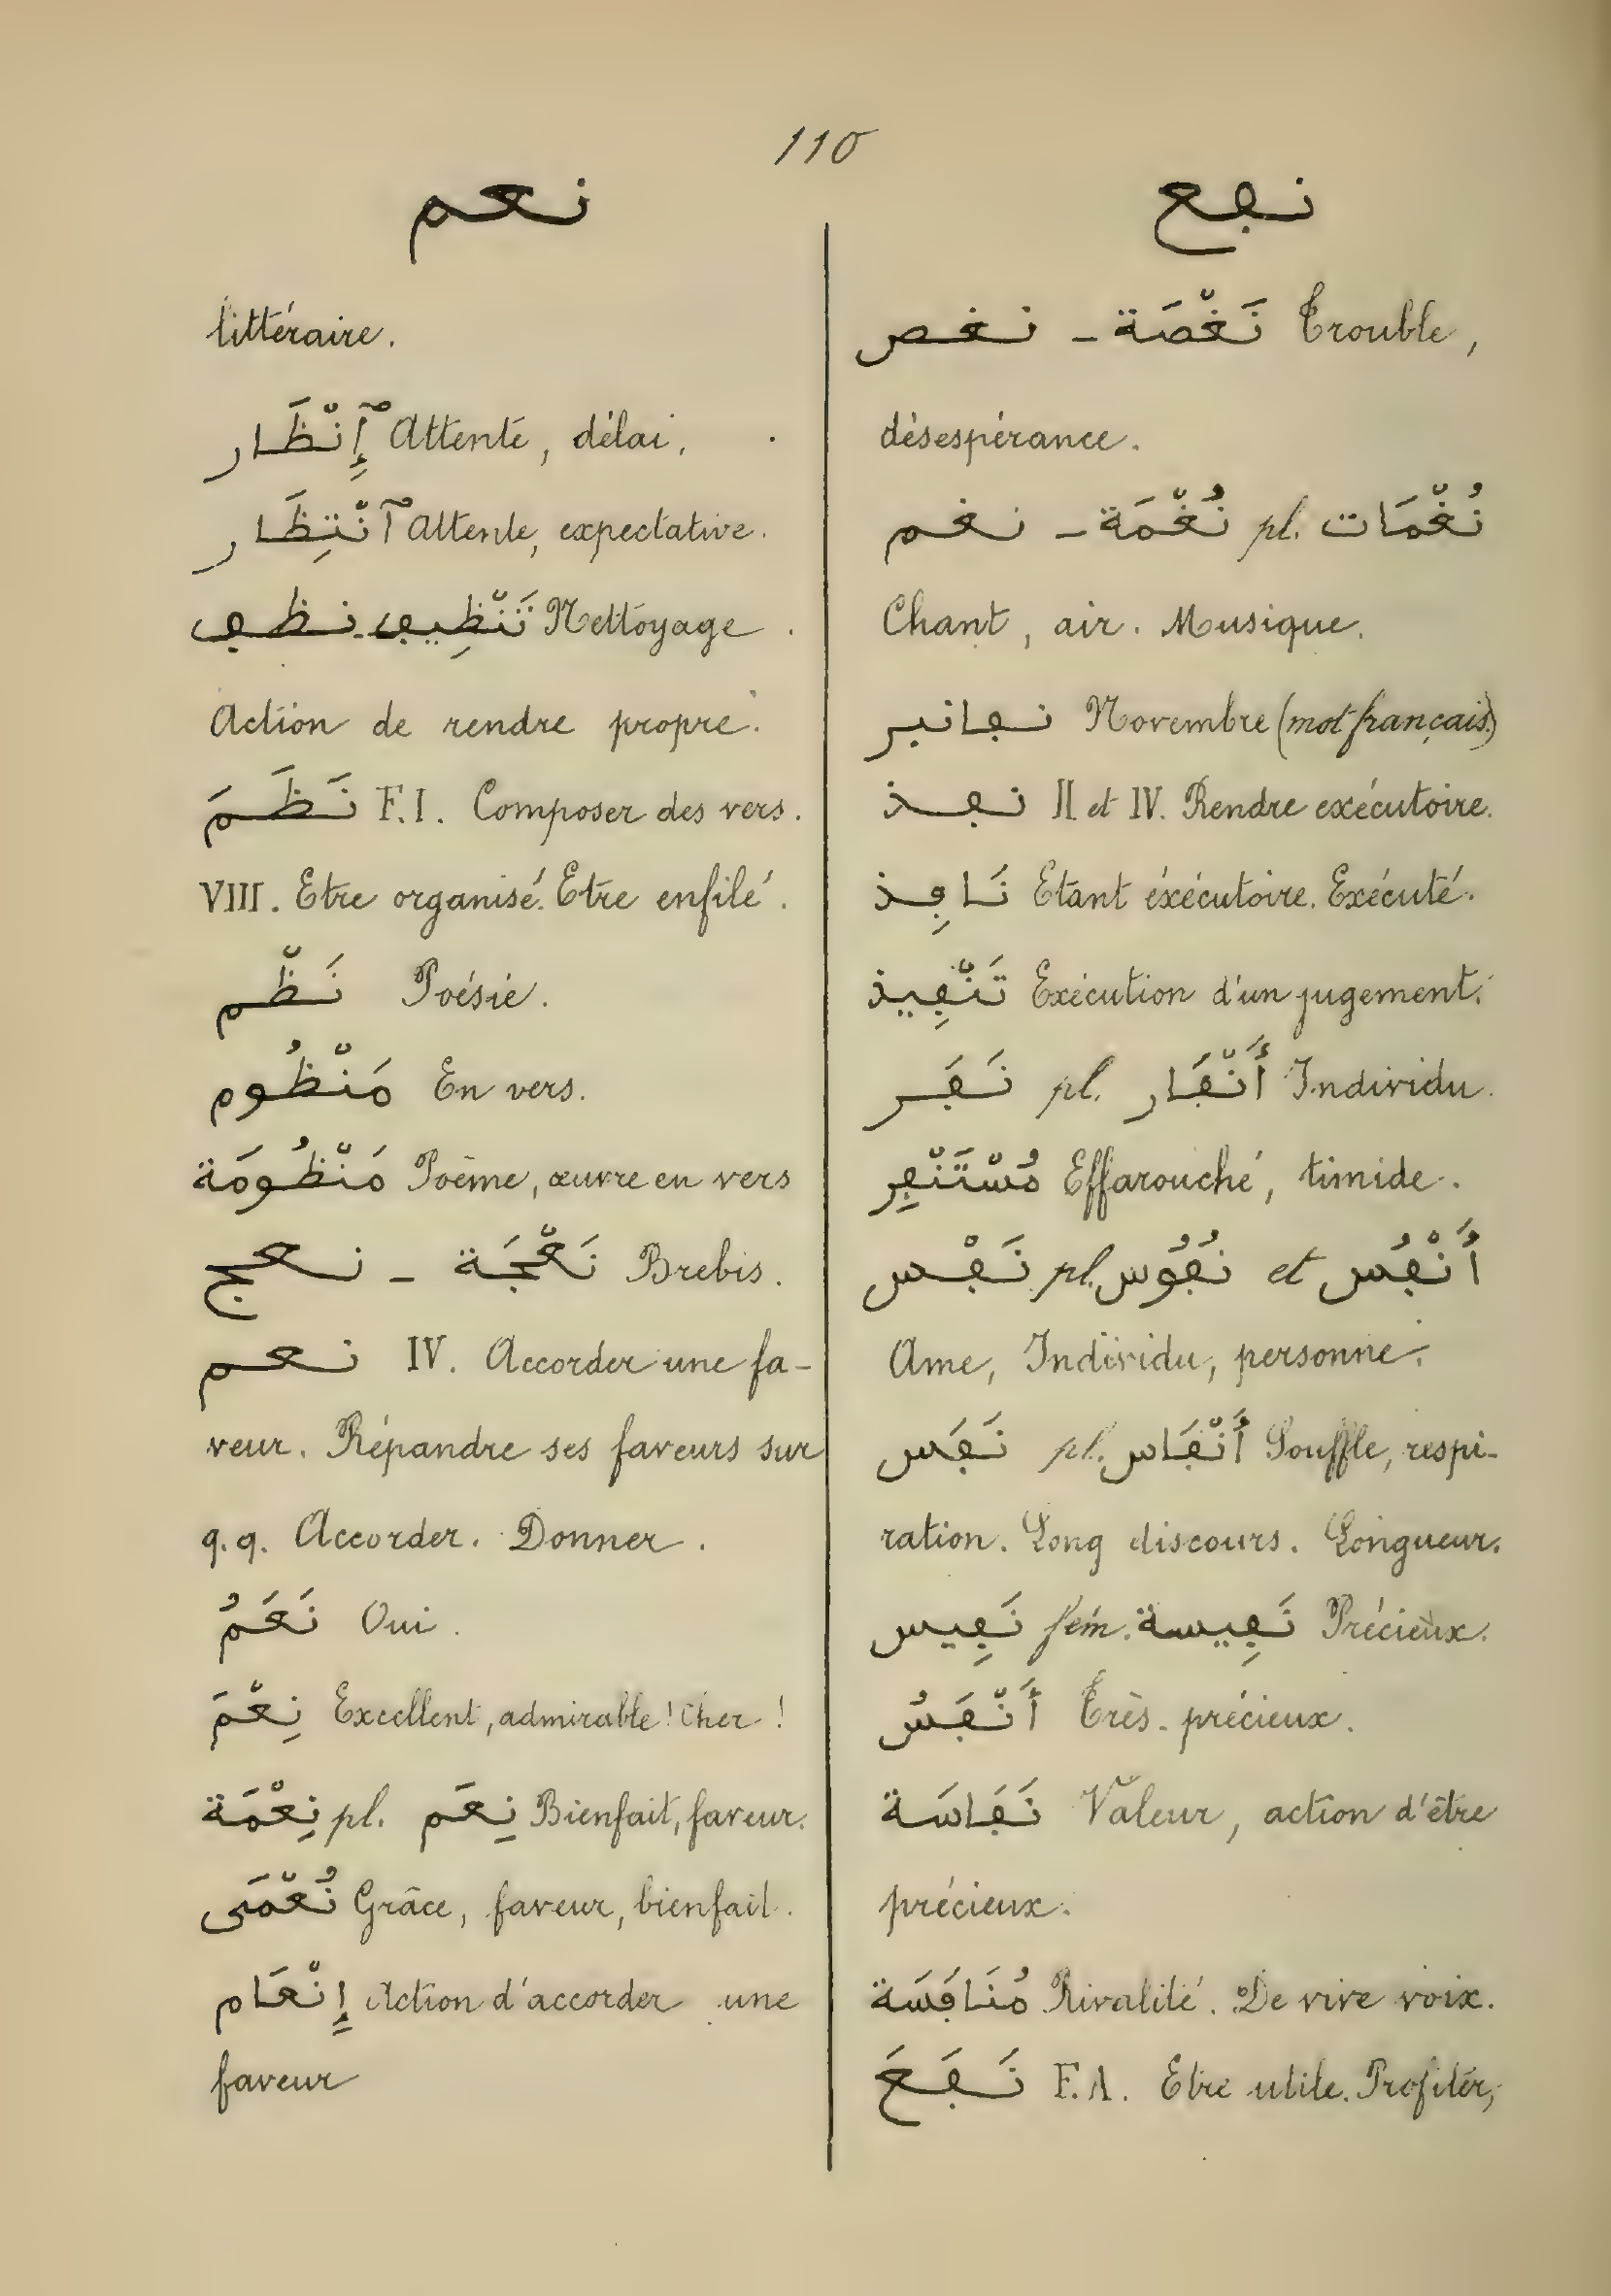 110
نعم
littéraire.
إِنْظَار Attente, délai.
آنْتِظَار Attente, expectative.
نظف - تَنْظِيف Nettoyage.
Action de rendre propre.
نَظَمَ F.I. Composer des vers.
VIII. Etre organisé. Etre enfilé.
نَظْم Poésie.
مَنْظُوم En vers.
مَنْظُومَة Poême, œuvre en vers
نعج - نَعْجَة Brebis.
نعم IV. Accorder une fa-
veur. Répandre ses faveurs sur
q.q. Accorder. Donner.
نَعَمُ Oui.
نِعْمَ Excellent, admirable! Cher!
نِعْمَة pl. نِعَم Bienfait, faveur.
نُعْمَى Grâce, faveur, bienfait.
إِنْعَام Action d'accorder une
faveur
نفع
نغص - نَغْصَة Trouble,
désespérance.
نغم - نُغْمَة pl. نُغْمَات
Chant, air. Musique.
نفانبر Novembre (mot français)
نفذ II et IV. Rendre exécutoire.
نَافِذ Etant éxécutoire. Exécuté.
تَنْفِيذ Exécution d'un jugement.
نَفَر pl. أَنْفَار Individu.
مُسْتَنْفِر Effarouché, timide.
نَفْس pl. نُفُوس et أَنْفُس
Ame, Individu, personne.
نَفَس pl. أَنْفَاس Souffle, respi-
ration. Long discours. Longueur.
نَفِيس fém. نَفِيسة Précieux.
أَنْفَسُ Très-précieux.
نَفَاسَة Valeur, action d'être
précieux.
مُنَافَسَة Rivalité. De vive voix.
نَفَعَ F.A. Etre utile. Profiter,